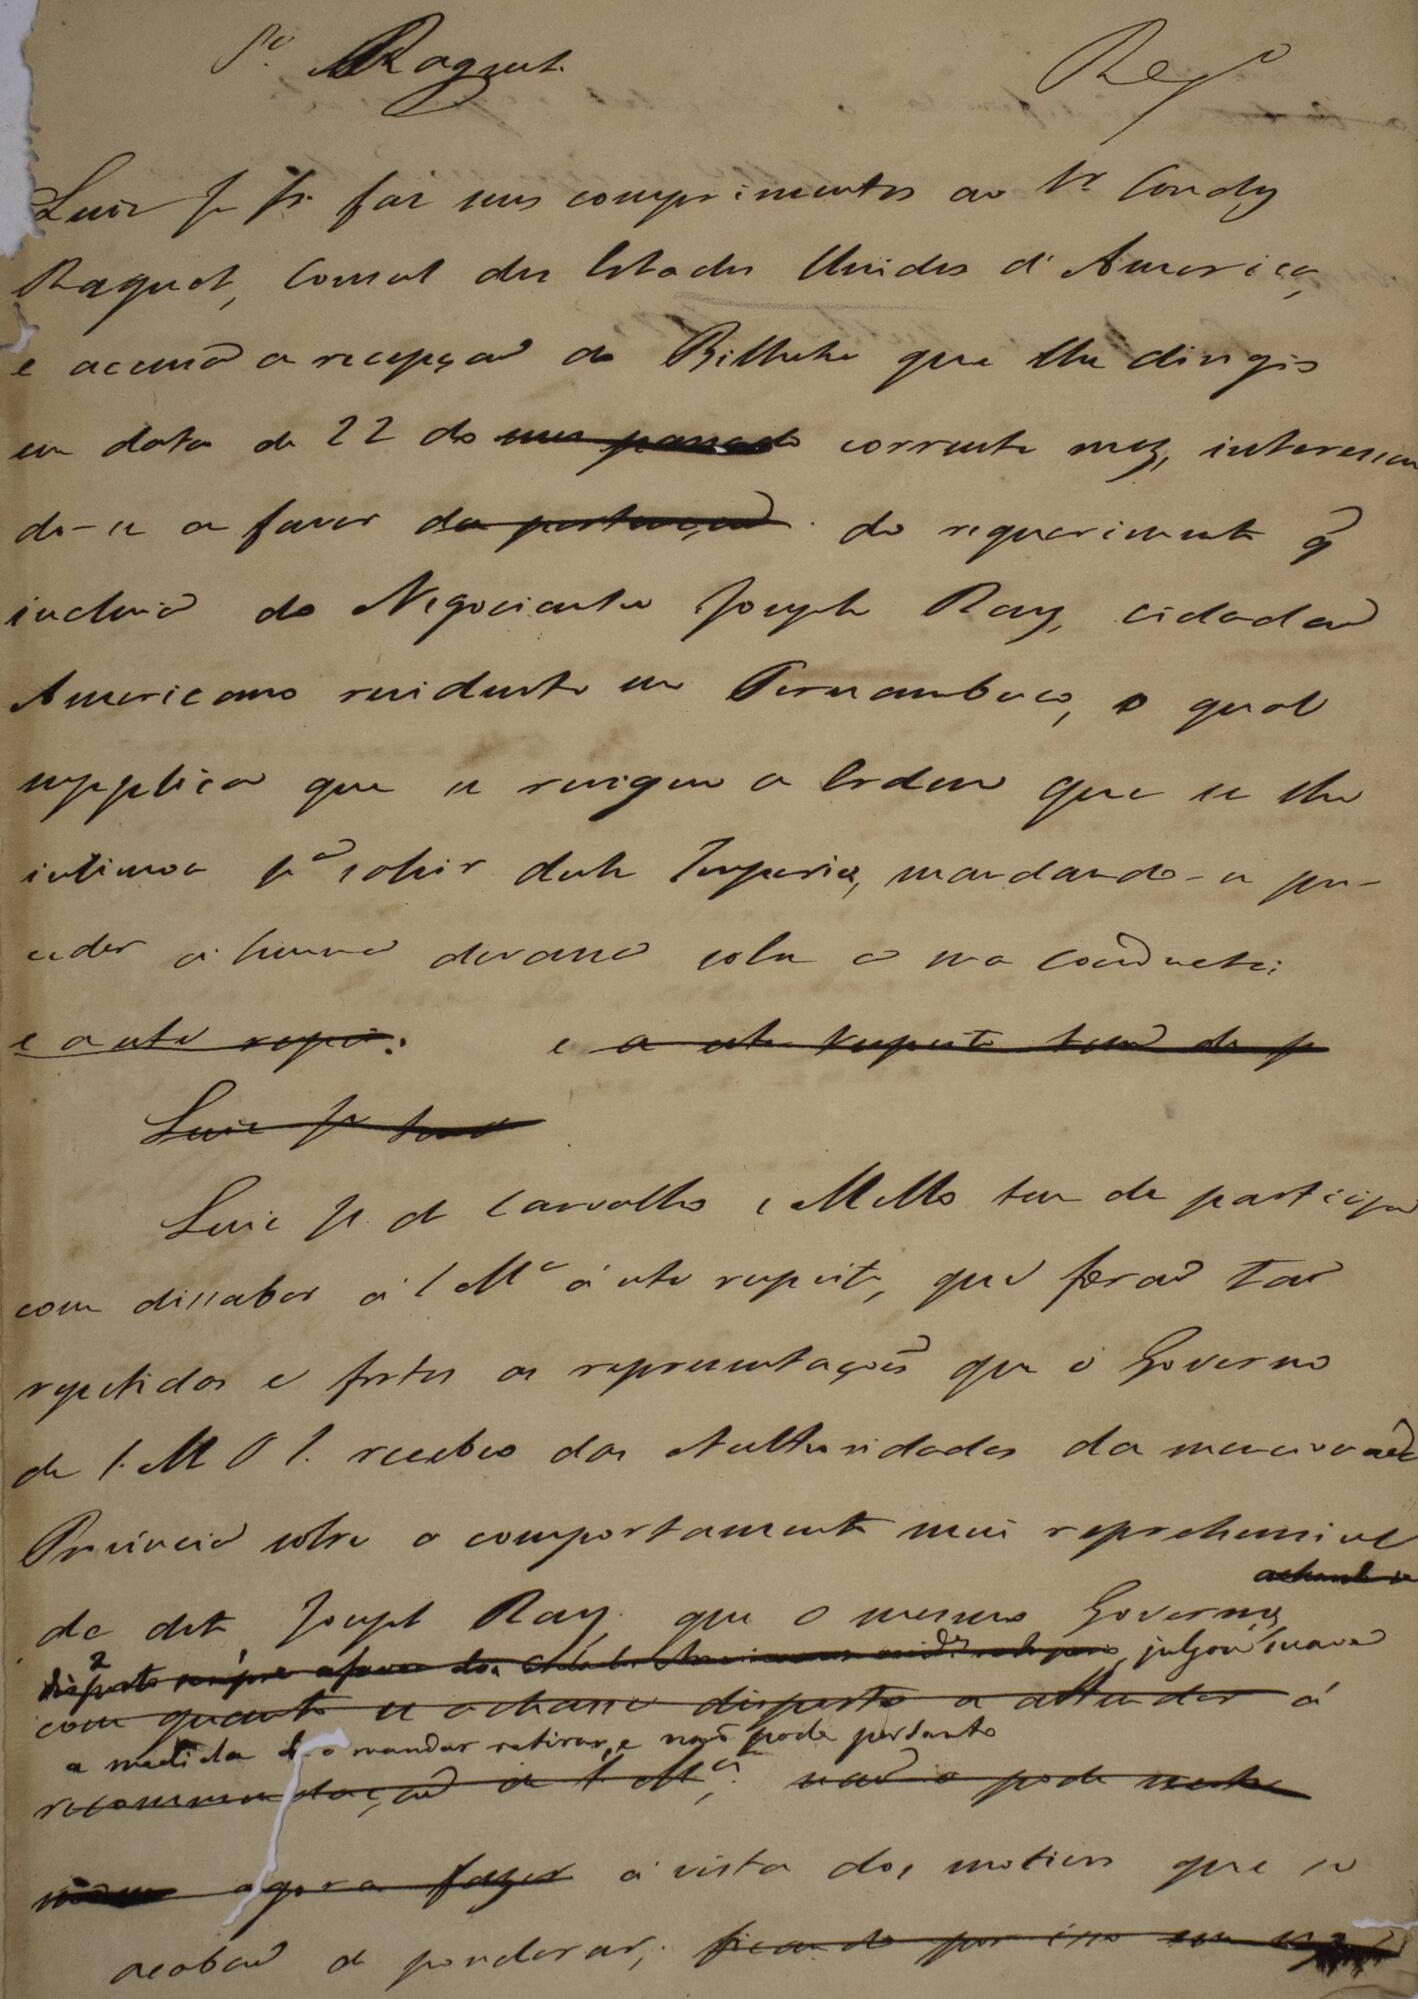 Pa. Raguet.
Regdo
Luiz Je Je faz seus comprimentos ao Sr Condy
Raguet, Consul dos Estados Unidos d'America,
e accusa a recepçaõ do Bilhete que lhe dirigio
em data de 22 do mez passado corrente mez, interessan
do-se a favor da pertençaõ do requerimento q̃
incluia do Negociante Joseph Ray, cidadaõ
Americano residente em Pernambuco, o qual
supplica que se revigue a Ordem que se lhe
intimou pa sahir deste Imperio, mandando-se pro-
ceder á huma devassa sobre a sua conducta;
e a este respei: e a este respeito tem de p
Luiz Je tem
Luiz Je de Carvalho e Mello tem de participar
com dissabor á S Mce á este respeito, que foraõ taõ
repetidas e fortes as representaçoẽs que o Governo
de S. M O I. recebeo das Authoridades da mencionada
Provincia sobre o comportamento mui reprehensivel
achando se
do dito Joseph Ray, que o mesmo Governo,
disposto sempre a favor dos julgou suave
com quanto se achasse disposto a attender á
a medida de o mandar retirar, e naõ pode portanto
recommendaçaõ de S. Mce, naõ o pode neste
agora fazer á vista dos motivos que se
acabaõ de ponderar; ficando por isso sem